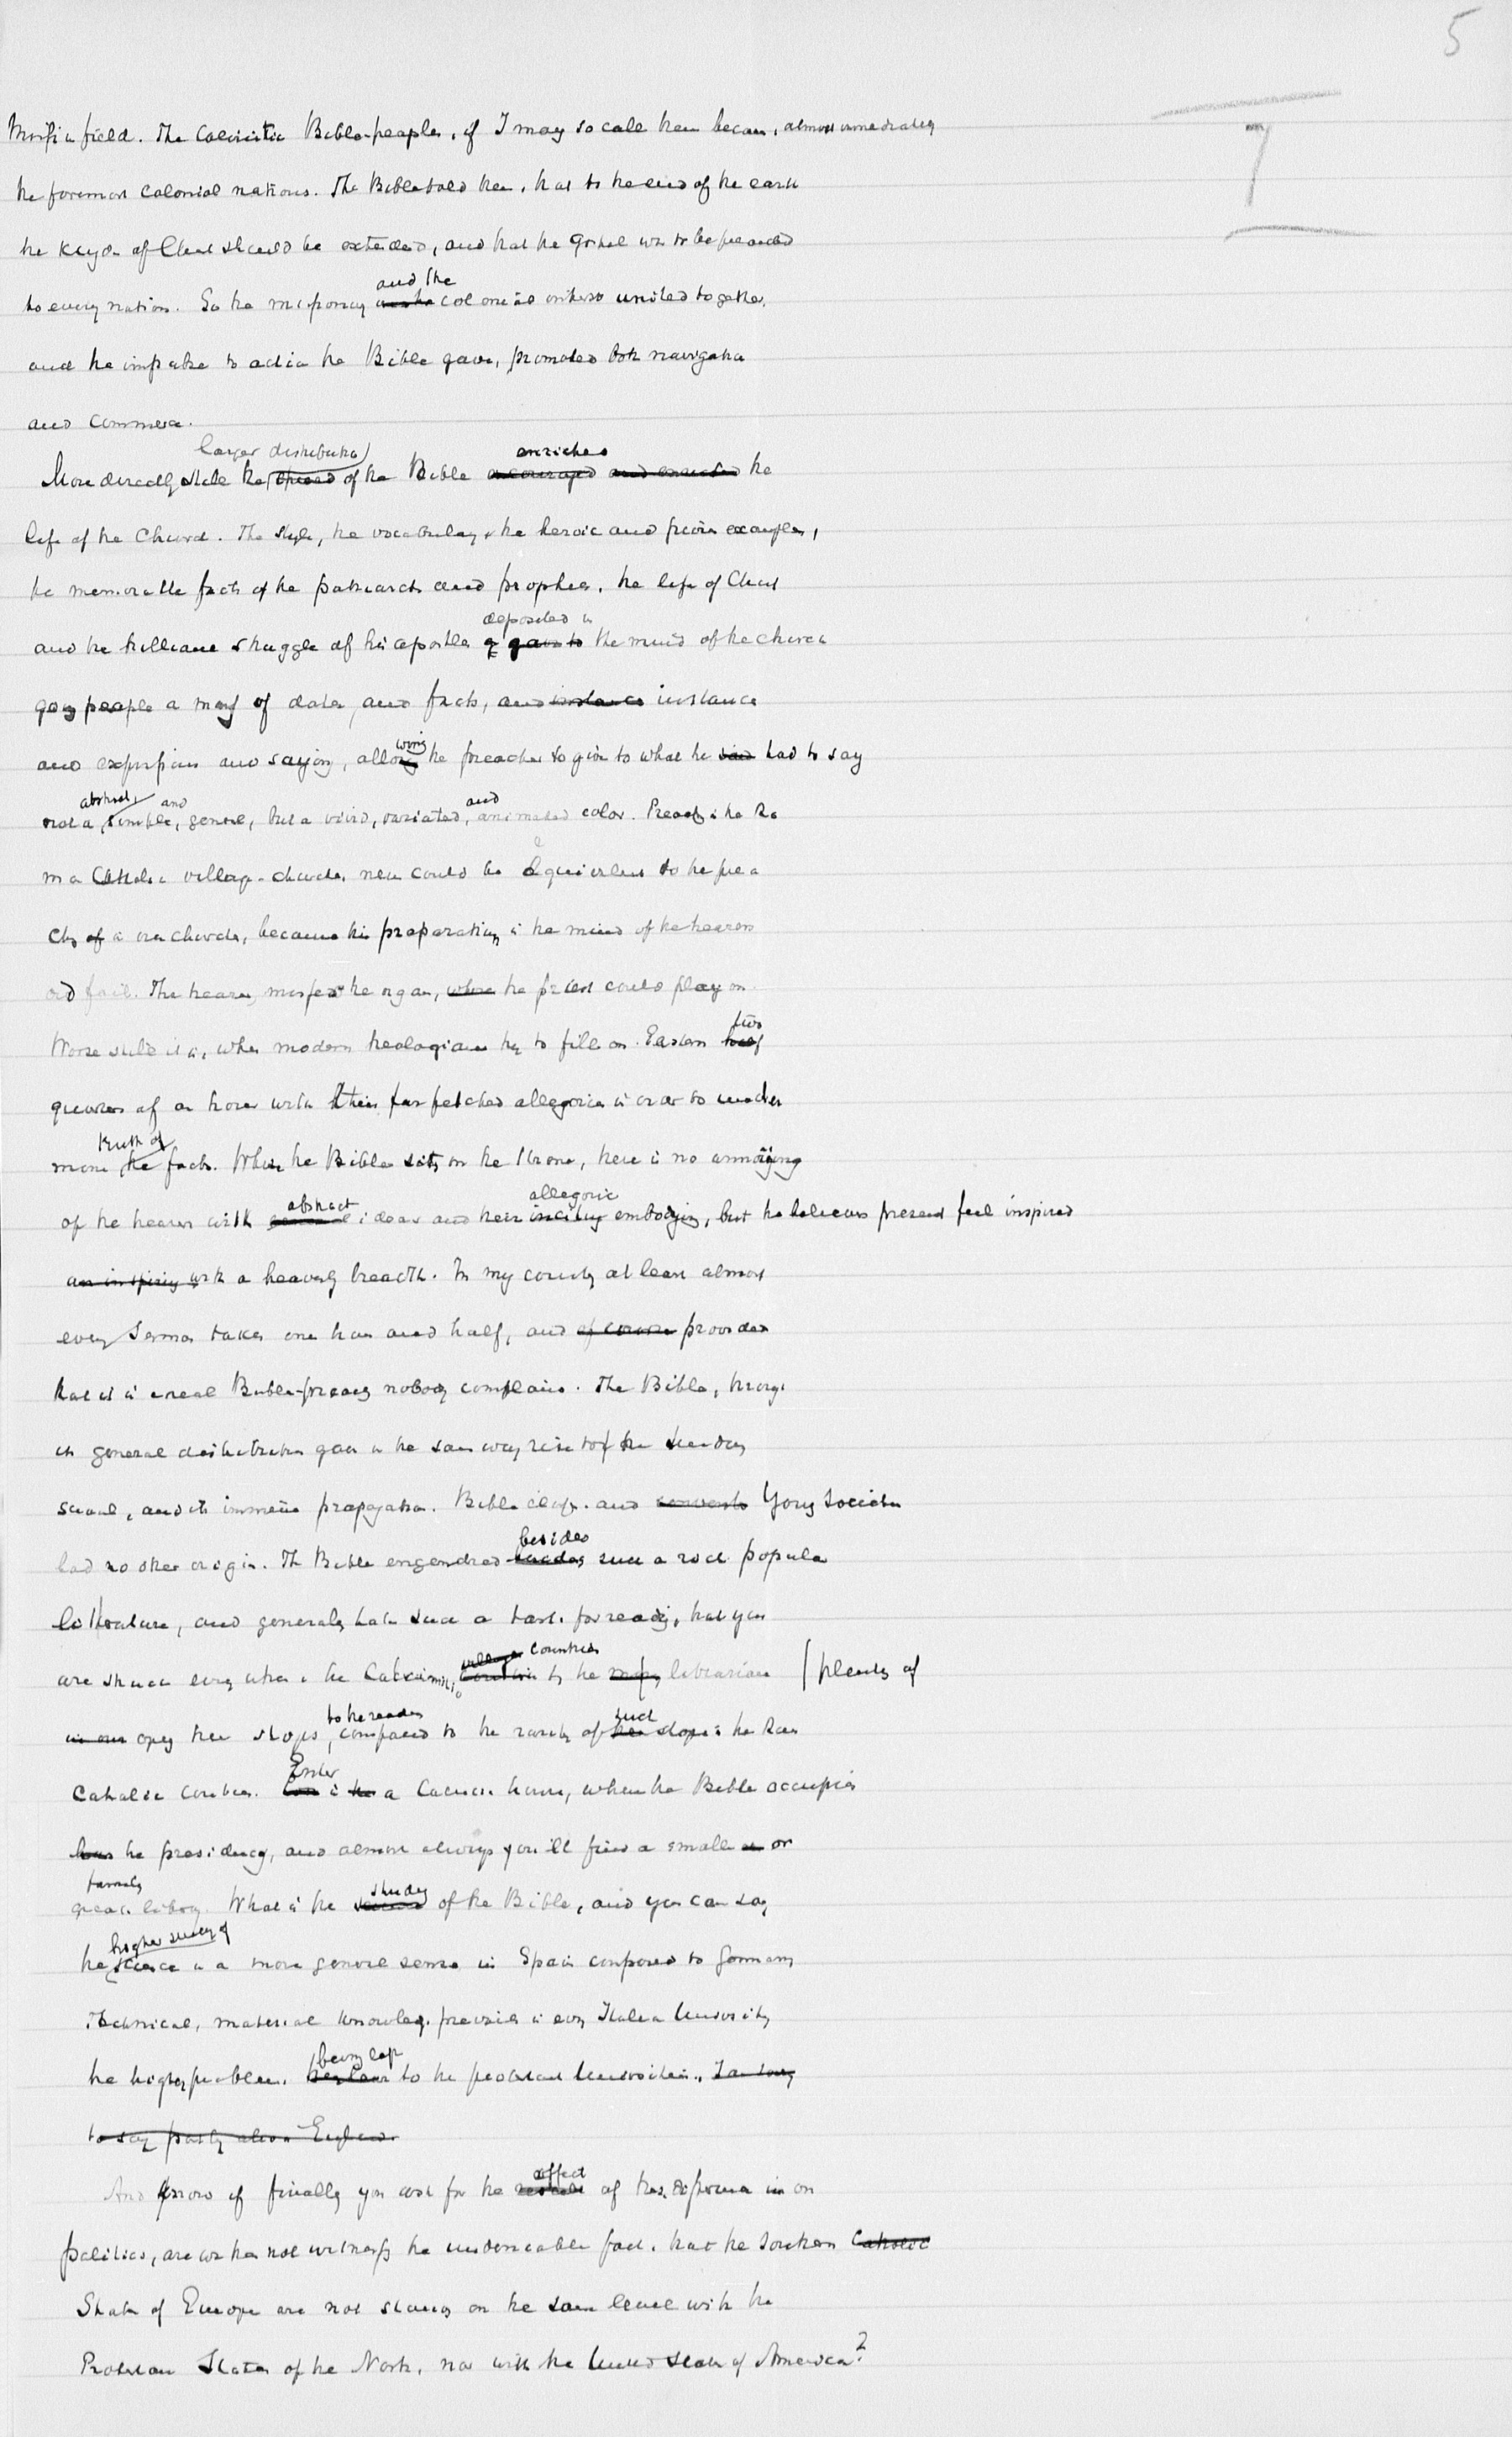 5
7
field. The Calvinistic Bible-peoples, if I may so call them became, almost immediately
the foremost colonial nations. The Bible told them, that to the end of the earth
the Kingdom of Christ should be extended, and that the Gospel was to be preached
and the
to every nation. So the missionary colonial interest united together,
and the impulse to action the Bible gave, promoted both navigation
and commerce.
larger distribution enriched
More directly still the spread of the Bible encouraged and the
life of the Church. The style, the vocabulary, the heroic and pious examples,
the memorable facts of the patriarchs and prophets, the life of Christ
deposited in
and the brilliant struggle of his apostles gave to the mind of the church
going people a mass of data, and facts, and instances instances
wing
and expressions and sayings, allo the preacher to give to what he said had to say
abstract, and and
not a simple, general, but a vivid, variated, animated color. Preaching in the Ro
man Catholic village-churches never could be equivalent to the prea
ching of in our churches, because this preparation in the mind of the hearers
did fail. The hearers missed the organ, where the priest could play on.
two
Worse still it is, when modern theologians try to fill on Eastern half
quarters of an hour with their far fetched allegories in order to under
truth of
mine the facts. When the Bible sits on the throne, there is no annoying
abstract allegoric
of the hearers with general ideas and their embodying, but the believers present feel inspired
an inspiring with a heavenly breath. In my country at least almost
every Sermon takes one hour and half, and of course provided
that it is a real Bible-preaching nobody complains. The Bible, through
its general distribution gave in the same way rise to the Sunday
school, and its immense propagation. Bible class and Young Societies
besides
had no other origin. The Bible engendered besides such a rich popular
litterature, and generally such a taste for reading, that you
village countries
are struck every where in the Calvinistic countries by the many librarians plenty of
to the readers such
in our opening their shops, compared to the rarity of shops in the Roman
Enter
Catholic countries. in the a Calvinist house, where the Bible occupies
has the presidency, and almost always you'll find a small or
family
great library. What is the study of the Bible, and you can say
higher study of
the science in a more general sense in Spain compared to Germany
Technical, material knowledge prevails in every Italian University
being left
the higher problems to the protestant Universities.
to say partly also England.
effect
And now if finally you ask for the result of this diploma in on
politics, are we then not witness the undeniable fact, that the Southern Catholic
States of Europe are not standing on the same level with the
Protestant States of the North, nor with the United States of America?